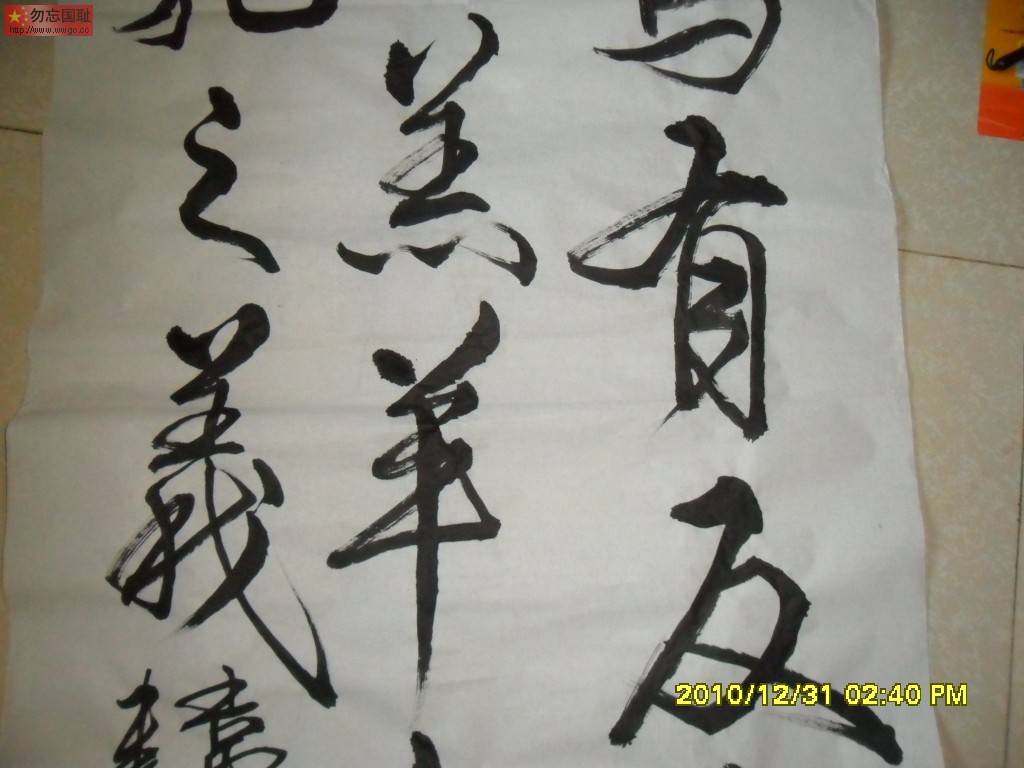 勿忘国耻
http://www.wwgc.cc
有反
羔羊
之義
2010/12/31 02:40 PM